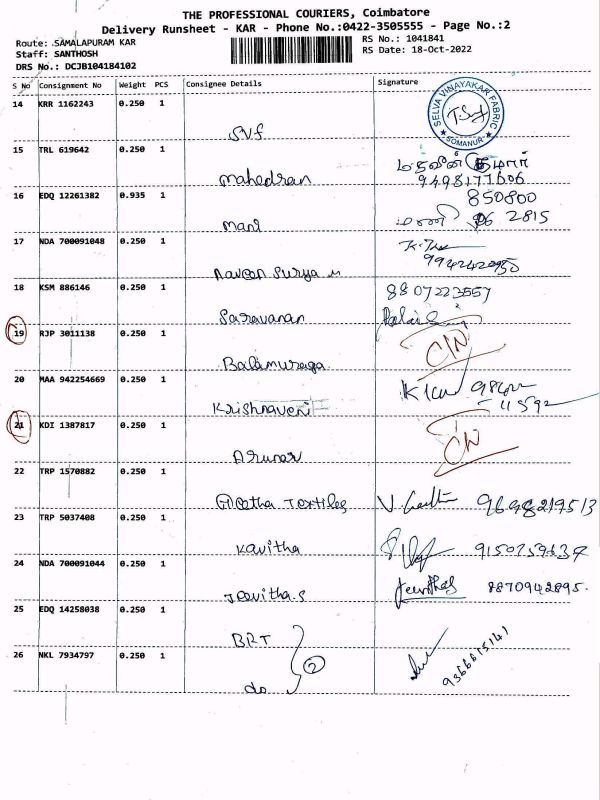 THE PROFESSIONAL COURIERS, Coimbatore
Delivery Runsheet - KAR - Phone No.:0422-3505555 - Page No.:2
Route: .SAMALAPURAM KAR
RS No.: 1041841
Staff: SANTHOSH
RS Date: 18-Oct-2022
DRS No.: DCJB104184102
S No Consignment No Weight PCS Consignee Details Signature
14 KRR 1162243 0.250 1
SELVA VINAYAKAR FABRIC
SOMANUR
SVF
15 TRL 619642 0.250 1
Mahedran
9498177606
16 EDQ 12261382 0.935 1
850800
Mani
மணி 2815
17 NDA 700091048 0.250 1
Naveen Surya M
18 KSM 886146 0.250 1
8807223557
Saravanan
19 RJP 3011138 0.250 1
CIN
Balamuraga
20 MAA 942254669 0.250 1
Krishnaveni
11592
21 KDI 1387817 0.250 1
CIN
Arunar
22 TRP 1570882 0.250 1
Geetha Textiles
9698219513
23 TRP 5037408 0.250 1
Kavitha
9150759637
24 NDA 700091044 0.250 1
Jeevitha.S
8870942895.
25 EDQ 14258038 0.250 1
BRT
2
26 NKL 7934797 0.250 1
9366615141
do